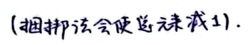 (捆绑法会使总元素减1).